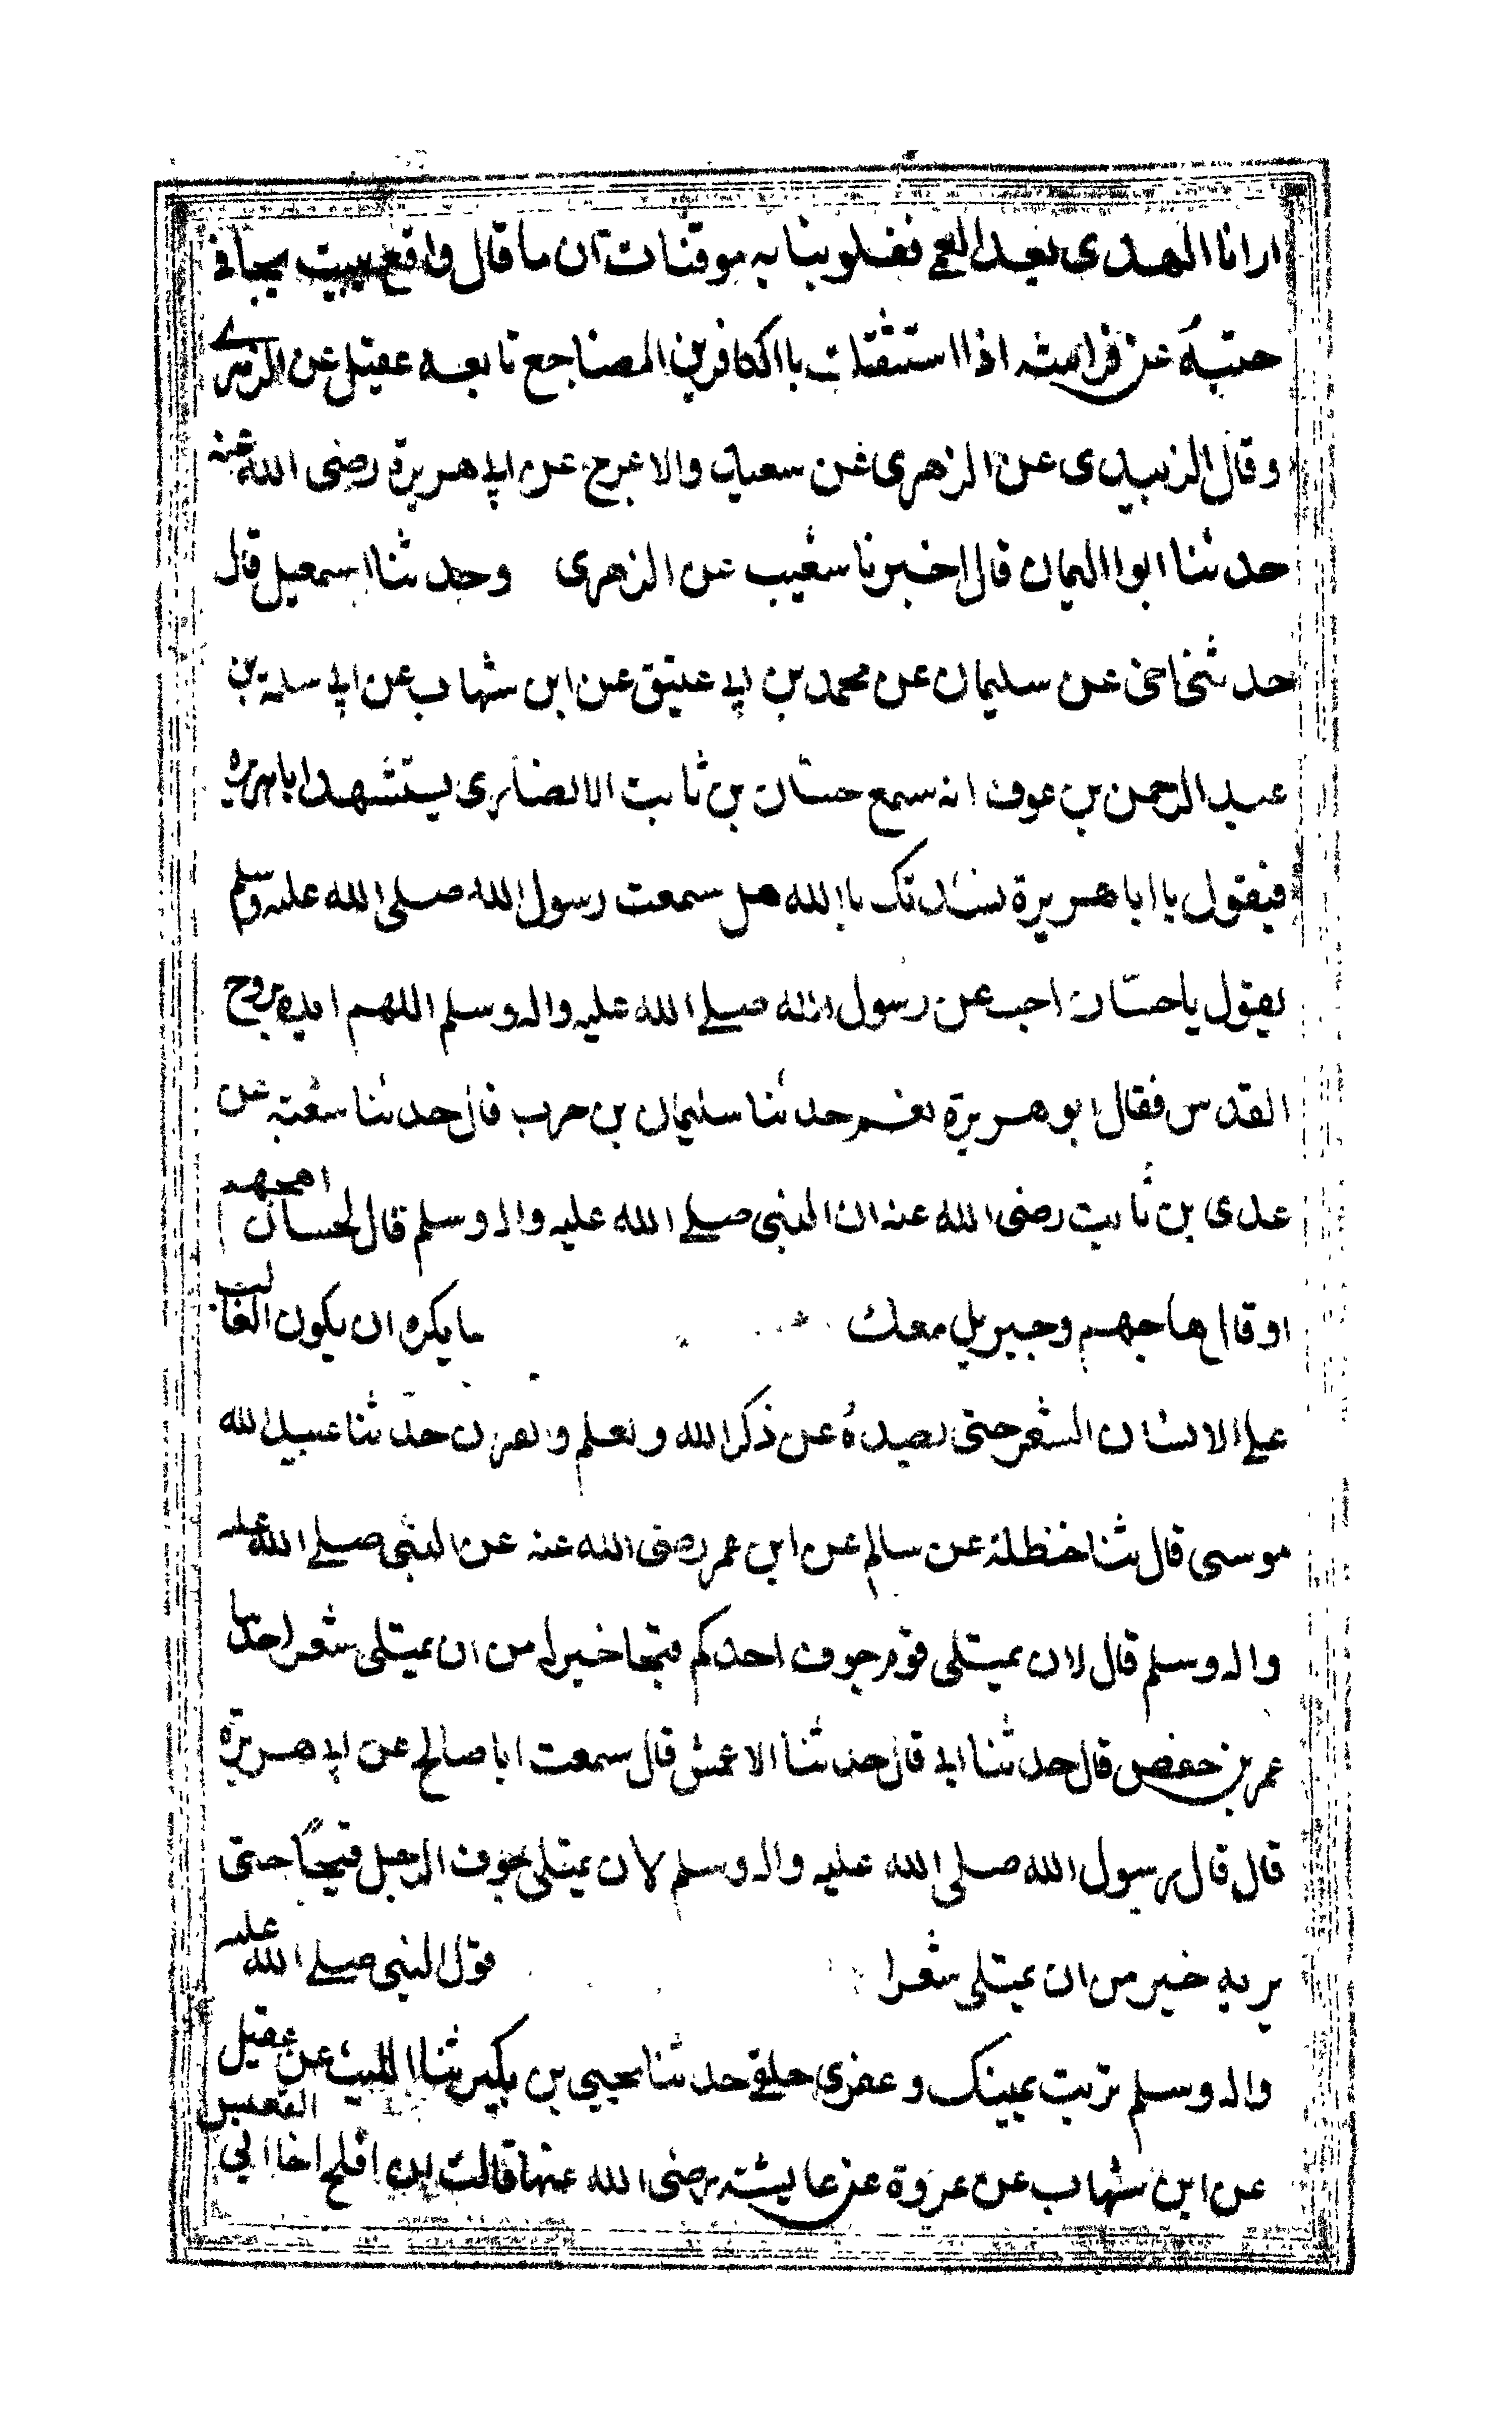 ارانا الهدى بعد العمى فقلوبنا به موقنات ان ما قال واقع يبيت يجافى
جنبه عن فراشه اذا استثقلت باالكافرين المضاجع تابعه عقيل عن الزهرى
وقال الزبيدى عن الزهرى عن سعيد والاعرج عن ابى هريرة رضى الله عنه
حدثنا ابوا اليمان قال اخبرنا شعيب عن الزهرى وحدثنا اسمعيل قال
حدثنى اخى عن سليمان عن محمد بن ابى عتيق عن ابن شهاب عن ابى سلمة بن
عبد الرحمن بن عوف انه سمع حسان بن ثابت الانصارى يستشهد اباهريرة
فيقول يا ابا هريرة نشدتك باالله هل سمعت رسول الله صلى الله عليه وسلم
يقول ياحسّان اجب عن رسول الله صلے الله عليه واله وسلم اللهم ايده بروح
القدس فقال ابو هريرة نعم حدثنا سليمان بن حرب قال حدثنا شعبة عن
عدى بن ثابت رضى الله عنه ان النبى صلے الله عليه واله وسلم قال لحسان اهجهم
اوقال هاجهم وجبريل معك ما يكره ان يكون الغالب
على الانسان الشعر حتى يصده عن ذكر الله و تعلم و القرن حدثنا عبيد الله
موسى قال ثنا حنظلة عن سالم عن ابن عمر رضى الله عنه عن النبى صلے الله عليه
واله وسلم قال لان يمتلى قور جوف احدكم قيحا خير له من ان يمتلى شعرا حدثنا
عمر بن حفص قال حدثنا ابى قال حدثنا الاعمش قال سمعت ابا صالح عن ابى هريرة
قال قال رسول الله صلى الله عليه واله وسلم لان يمتلى جوف الرجل قيحًا حتى
يريه خير من ان يمتلى شعرا قول النبى صلے الله عليه
واله وسلم تربت يمينك و عقرى حلقے حدثنا يحيى بن بكير ثنا الليث عن عقيل
عن ابن شهاب عن عروة عن عايشة رضى الله عنها قالت ان افلح اخا ابى القعيس